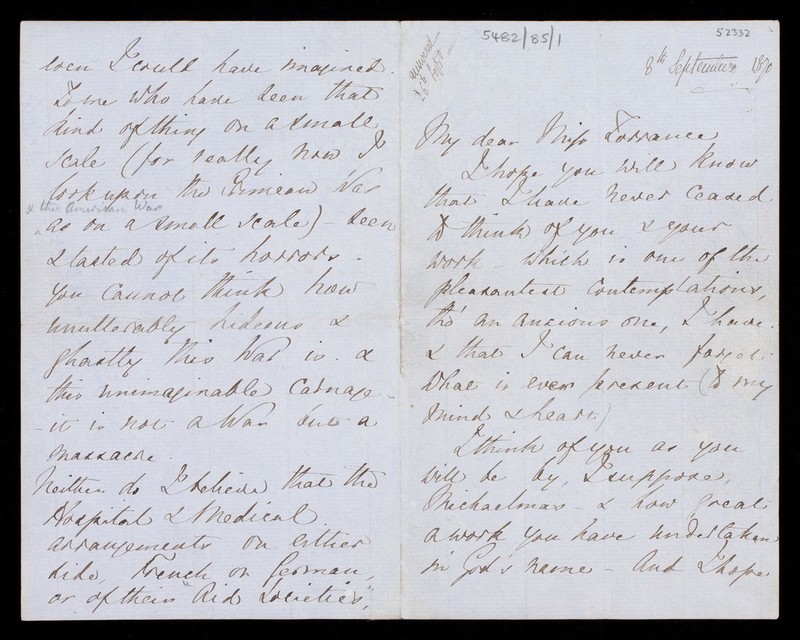 even I could have imagined.
To me who have seen that
kind of thing on a small
scale (for really now I
look upon the Crimean War
& the American War
as on a small scale) - seen
& tasted of its horrors -
you cannot think how
unutterably hideous &
ghastly this War is. &
this unimaginable carnage -
- it is not a War but a
massacre.
Neither do I believe that the
Hospital & Medical
arrangements on either
side, French or German,
or of their "Aid Societies",
5482/85/1
52332
answered
26th Sept
8th September 1870
My dear Miss Torrance
I hope you will know
that I have never ceased
to think of you & your
work - which is one of the
pleasantest contemplations,
tho' an anxious one, I have.
& that I can never forget
what is ever present (to my
mind & heart)
I think of you as you
will be by, I suppose,
Michaelmas - & how great
a work you have undertaken
in God's name - And I hope